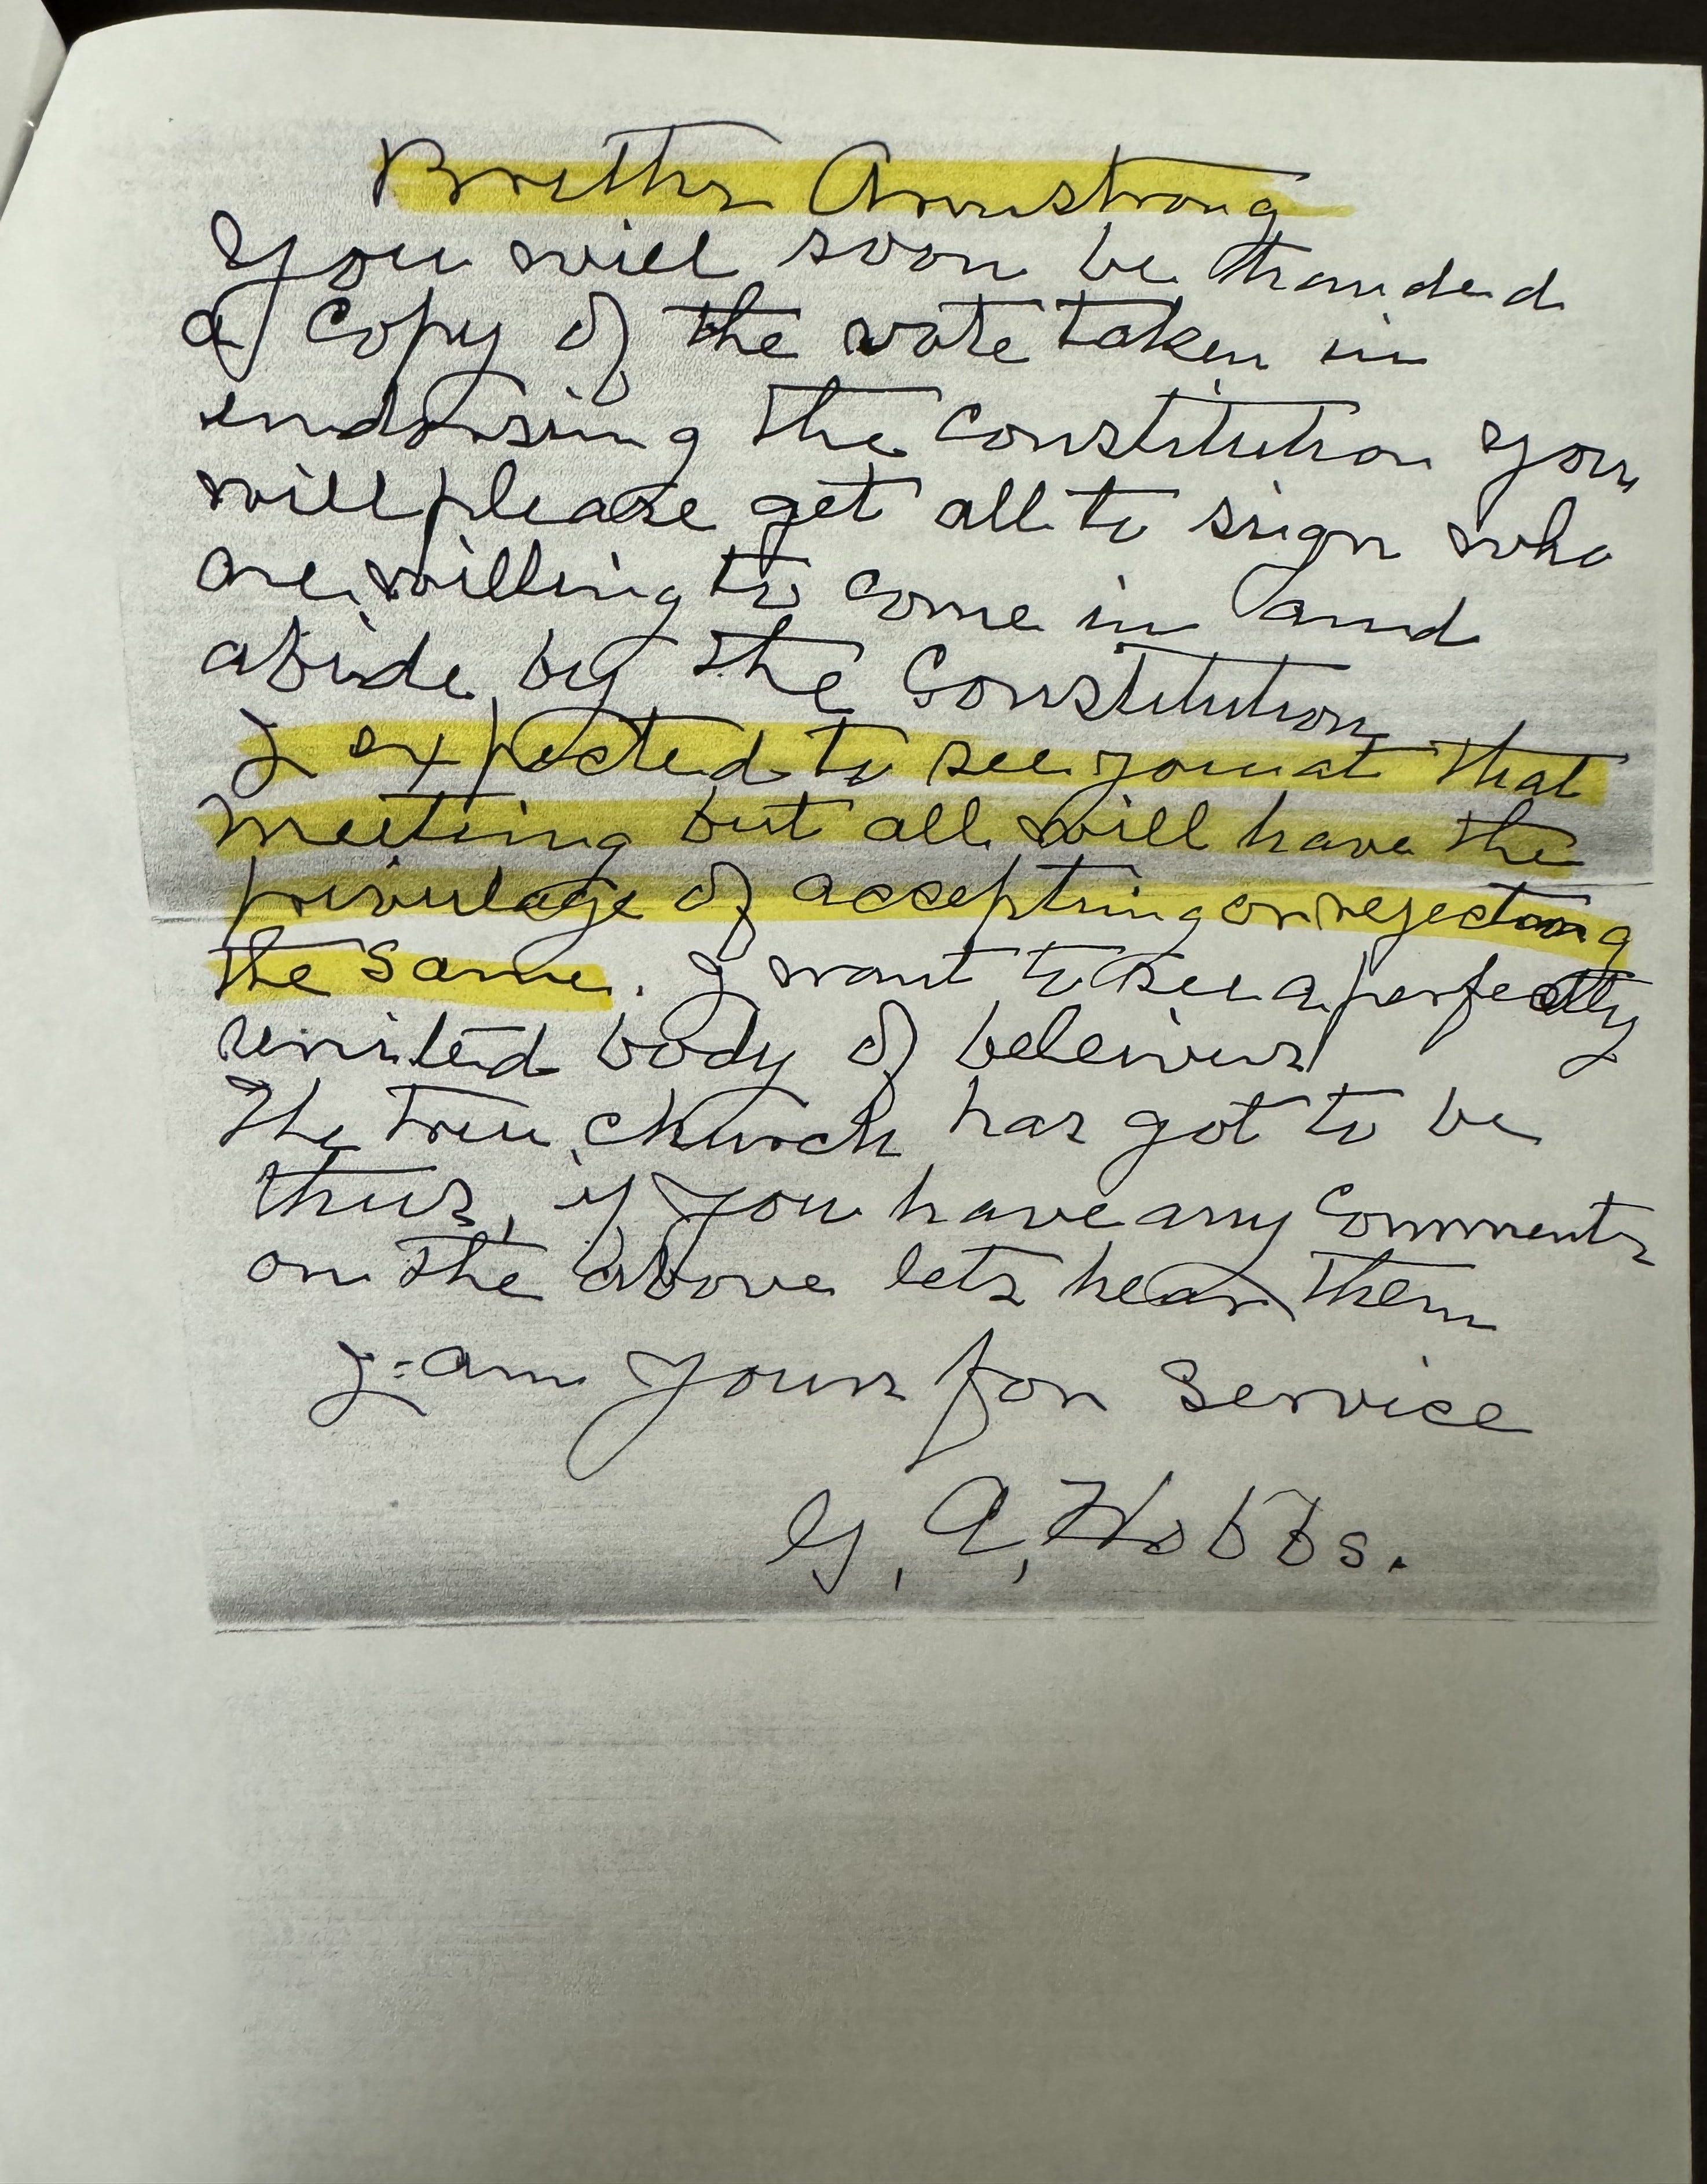 Brother Armstrong
You will soon be handed
a copy of the vote taken in
endorsing the Constitution you
will please get all to sign who
are willing to come in and
abide by the Constitution
I expected to see you at that
meeting but all will have the
privulage of accepting or rejecting
the same. I want to see a perfectly
united body of beleivers
The true church has got to be
thus, if you have any Comments
on the above lets hear them
I am yours for Service
G. A. Hobbs.